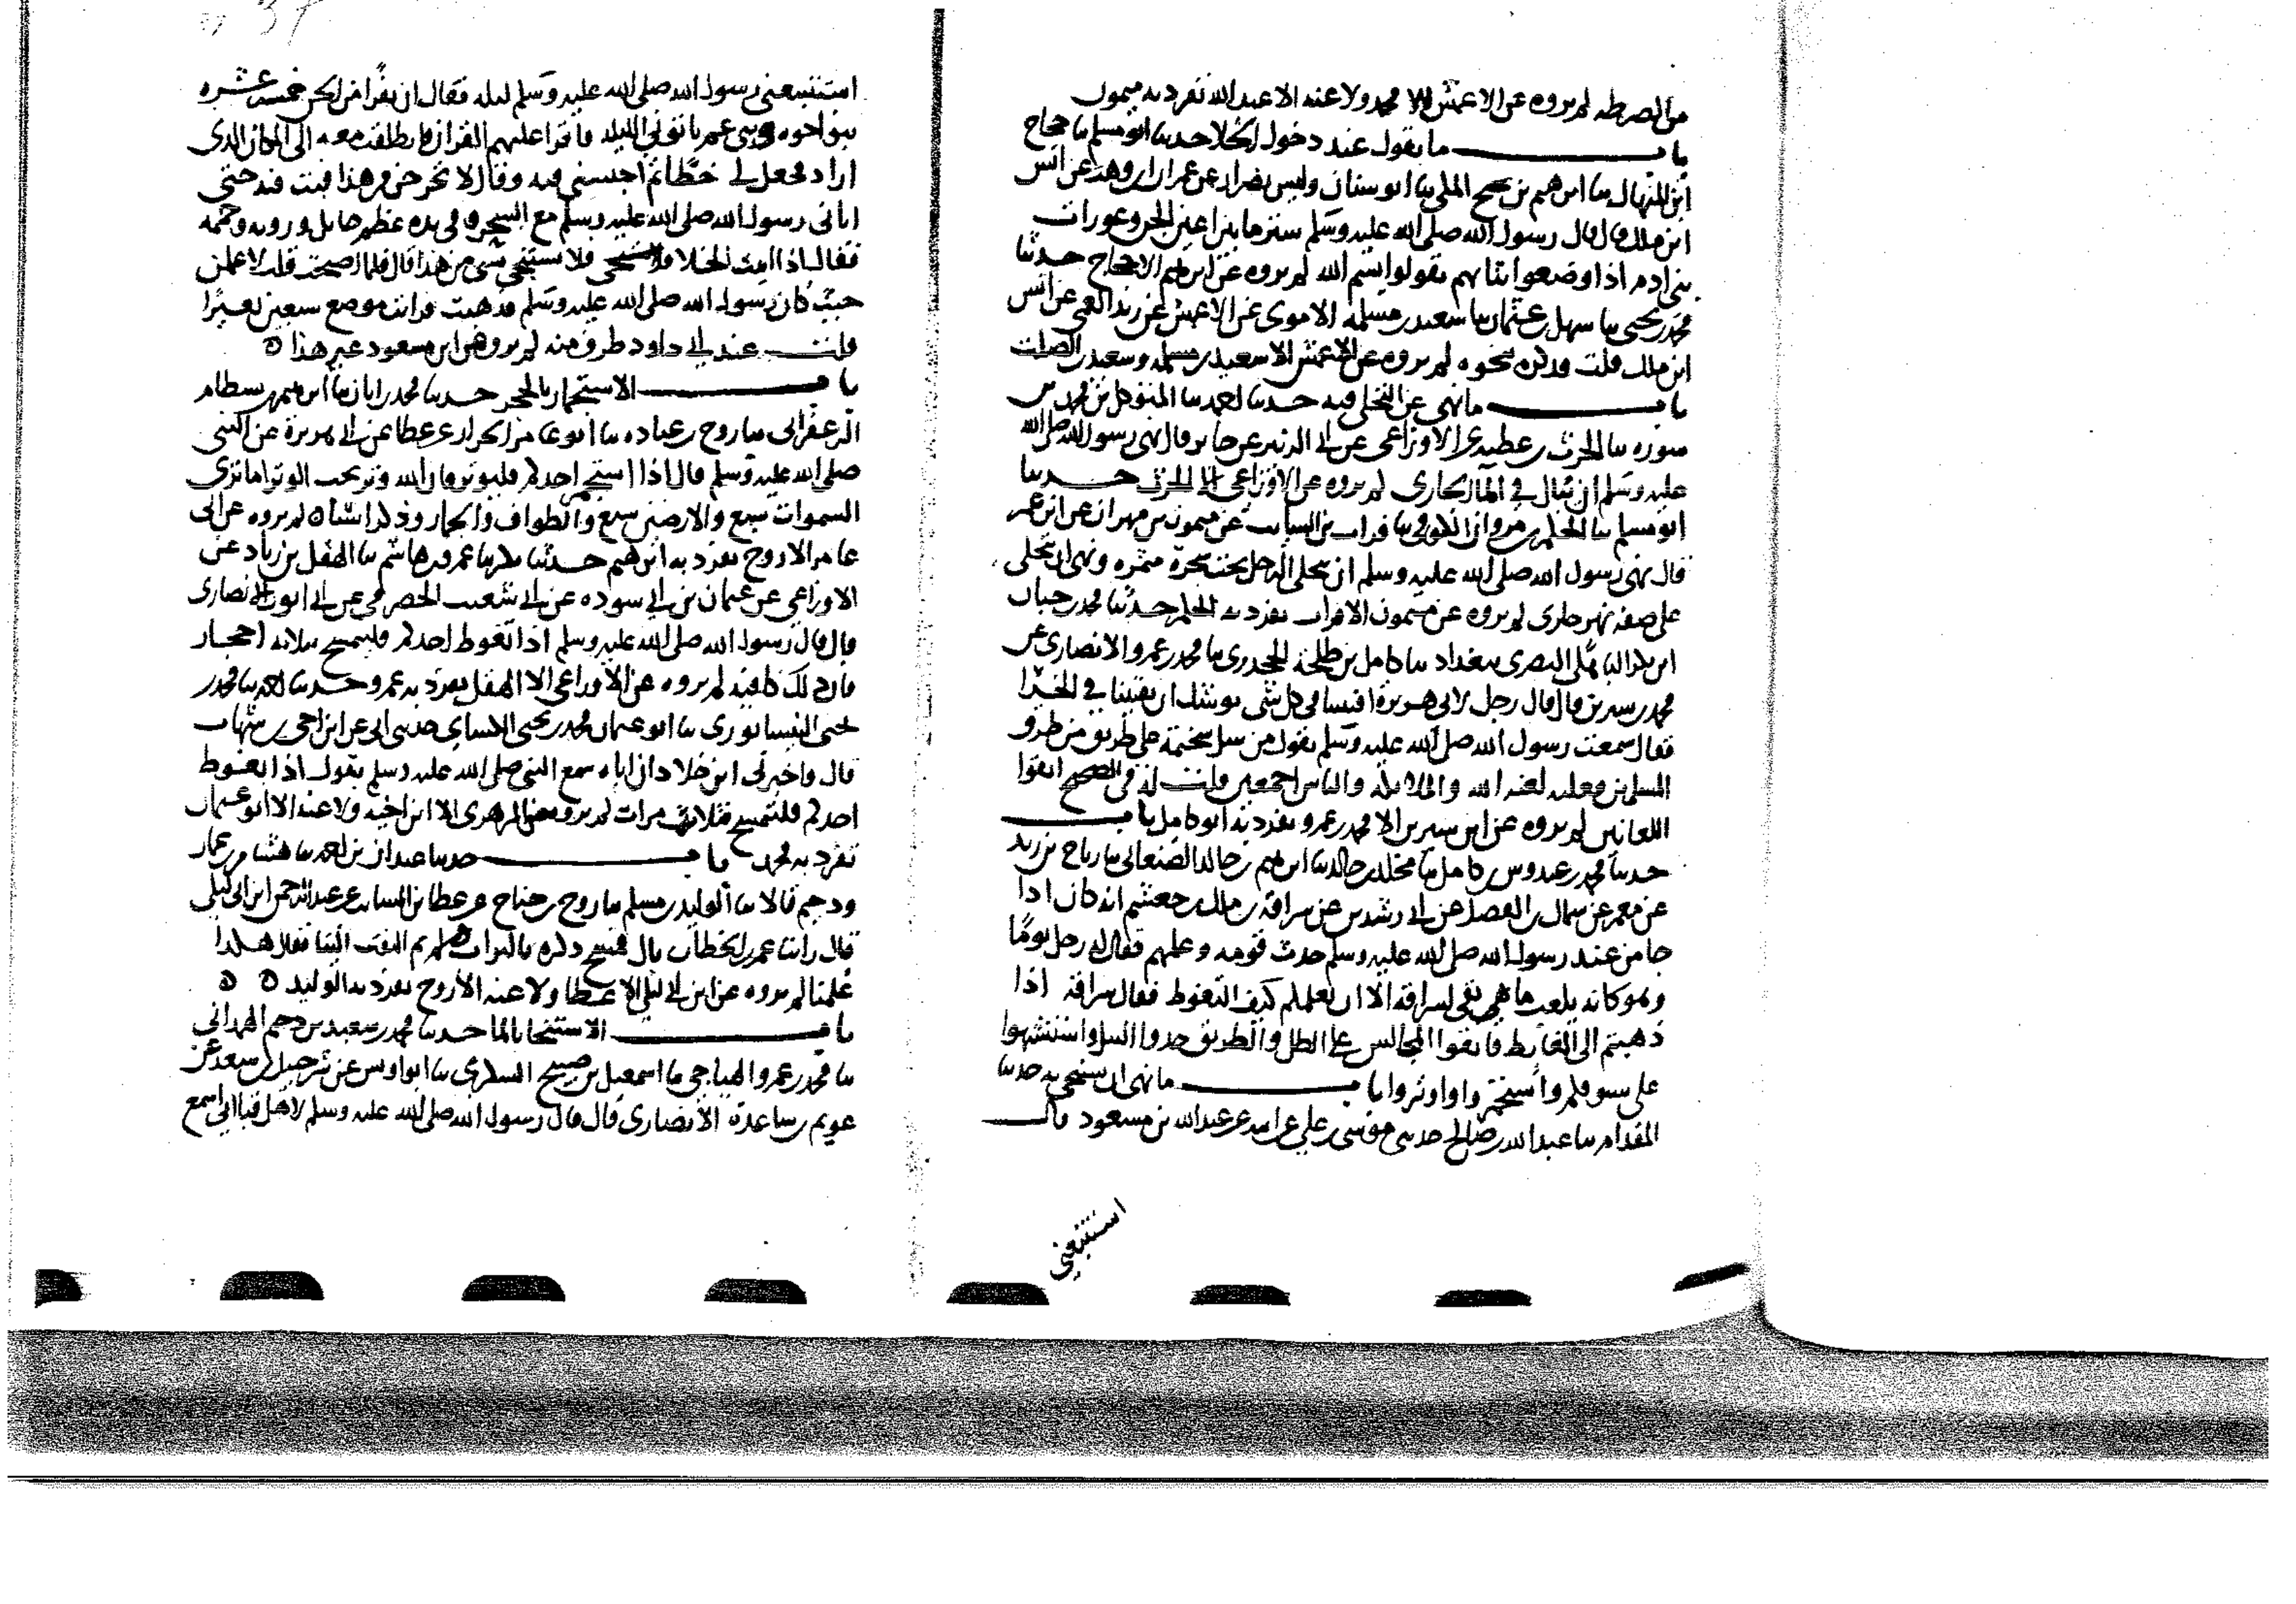 من الصرطه لم يروه عن الاعمش الا محمد ولا عنه الا عبد الله تفرد به ميمون
باب ما يقول عند دخول الخلا حدثنا ابو مسلم ثنا حجاج
ابن المنهال ثنا ابرهيم بن نجيح المكى ثنا ابو سنان وليس بضرار عن عمران بن وهب عن انس
ابن ملك قال قال رسول الله صلى الله عليه وسلم ستر ما بين اعين الجن وعورات
بنى ادم اذا وضعوا ثيابهم يقولوا بسم الله لم يروه عن ابرهيم الا حجاج حدثنا
محمد بن يحيى ثنا سهل بن عثمان ثنا سعيد بن مسلمه الاموى عن الاعمش عن زيد العمى عن انس
ابن ملك قلت فذكره نحوه لم يروه عن الاعمش الا سعيد بن مسلمه وسعد بن الصلت
باب ما نهى عن التخلى فيه حدثنا احمد ثنا المتوكل بن محمد بن
سوره ثنا الحرث بن عطيه عن الاوزاعى عن ابى الزبير عن جابر قال نهى رسول الله صلى الله
عليه وسلم ان يبال في الما الجارى لم يروه عن الاوزاعى الا الحرث حدثنا
ابو مسلم ثنا الحكم بن مروان الكوفى ثنا فرات بن السايب عن ميمون بن مهران عن ابن عمر
قال نهى رسول الله صلى الله عليه وسلم ان يتخلى الرجل تحت شجرة مثمره ونهى ان يتخلى
على ضفه نهر جارى لم يروه عن ميمون الا فرات تفرد به الحكم حدثنا محمد بن حيان
ابن بكر الباهلى البصرى ببغداد ثنا كامل بن طلحة الجحدرى ثنا محمد بن عمرو الانصارى عن
محمد بن سيرين قال قال رجل لابى هريرة افتيتنا في كل شى يوشك ان تفتينا في الخرا
فقال سمعت رسول الله صلى الله عليه وسلم يقول من سل سخيمته على طريق من طرق
المسلمين فعليه لعنه الله والملايكه والناس اجمعين قلت له في الصحيح اتقوا
اللعانين لم يروه عن ابن سيرين الا محمد بن عمرو تفرد به ابو كامل باب
حدثنا محمد بن عبدوس بن كامل ثنا مخلد بن خالد ثنا ابرهيم بن خالد الصنعانى ثنا رباح بن زيد
عن معمر عن سماك بن الفضل عن ابى رشدين عن سراقة بن ملك بن جعشم انه كان اذا
جا من عند رسول الله صلى الله عليه وسلم حدث قومه وعلمهم فقال له رجل يوما
وهو كانه يلعب ما بقى لسراقة الا ان يعلمكم كيف التغوط فقال سراقة اذا
ذهبتم الى الغايط فاتقوا المجالس على الظل والطريق خذوا النبل واستنشبوا
على سوقكم واستجمروا واوتروا باب ما نهى ان يستنجى به حدثنا
المقدام ثنا عبد الله بن صالح حدثنى موسى بن على عن ابيه عن عبد الله بن مسعود قال
استتبعنى
استتبعنى رسول الله صلى الله عليه وسلم ليله فقال ان نفرا من الجن خمسه عشره
بنو اخوه وبنى عم ياتونى الليله فاقرا عليهم القران فانطلقت معه الى المكان الذى
اراد فجعل لى خطا ثم اجلسنى فيه وقال لا تخرجن من هذا فبت فيه حتى
اتانى رسول الله صلى الله عليه وسلم مع السحر وفى يده عظم حايل وروثه وحممه
فقال اذا اتيت الخلا فلا تستنجى بشى من هذا قال فلما اصبحت قلت لاعلمن
حيث كان رسول الله صلى الله عليه وسلم فذهبت فرايت موضع سبعين بعيرا
قلت عند ابى داود طرف منه لم يروه عن ابن مسعود غير هذا
باب الاستجمار بالحجر حدثنا محمد بن ابان ثنا ابرهيم بن بسطام
الزعفرانى ثنا روح بن عباده ثنا ابو عامر الخراز عن عطا عن ابى هريرة عن النبى
صلى الله عليه وسلم قال اذا استجمر احدكم فليوتر فان الله وتر يحب الوتر اما ترى
السموات سبع والارضين سبع والطواف والجمار وذكر اشيا لم يروه عن ابى
عامر الا روح تفرد به ابرهيم حدثنا بكر ثنا عمرو بن هاشم ثنا الهقل بن زياد عن
الاوزاعى عن عثمان بن ابى سوده عن ابى شعيب الحضرمى عن ابى ايوب الانصارى
قال قال رسول الله صلى الله عليه وسلم اذا تغوط احدكم فليتمسح بثلاثه احجار
فان ذلك كافيه لم يروه عن الاوزاعى الا الهقل تفرد به عمرو حدثنا احمد ثنا محمد بن
يحيى النيسابورى ثنا ابو غسان محمد بن يحيى الكنانى حدثنى ابى عن ابن اخى بن شهاب
قال واخبرنى ابن خلاد ان اباه سمع النبى صلى الله عليه وسلم يقول اذا تغوط
احدكم فليتمسح ثلاث مرات لم يروه عن الزهرى الا ابن اخيه ولا عنه الا ابو غسان
تفرد به محمد باب حدثنا عبدان بن احمد ثنا هشام بن عمار
ودحيم قالا ثنا الوليد بن مسلم ثنا روح بن جناح عن عطا بن السايب عن عبد الرحمن ابن ابى ليلى
قال رايت عمر بن الخطاب بال فمسح ذكره بالتراب ثم التفت الينا فقال هكذا
علمنا لم يروه عن ابن ابى ليلى الا عطا ولا عنه الا روح تفرد به الوليد
باب الاستنجا بالما حدثنا محمد بن سعيد بن دحيم الهمدانى
ثنا محمد بن عمرو الهياجى ثنا اسمعيل بن صبيح اليشكرى ثنا ابو اويس عن شرحبيل بن سعد عن
عويم بن ساعدة الانصارى قال قال رسول الله صلى الله عليه وسلم لاهل قبا انى اسمع